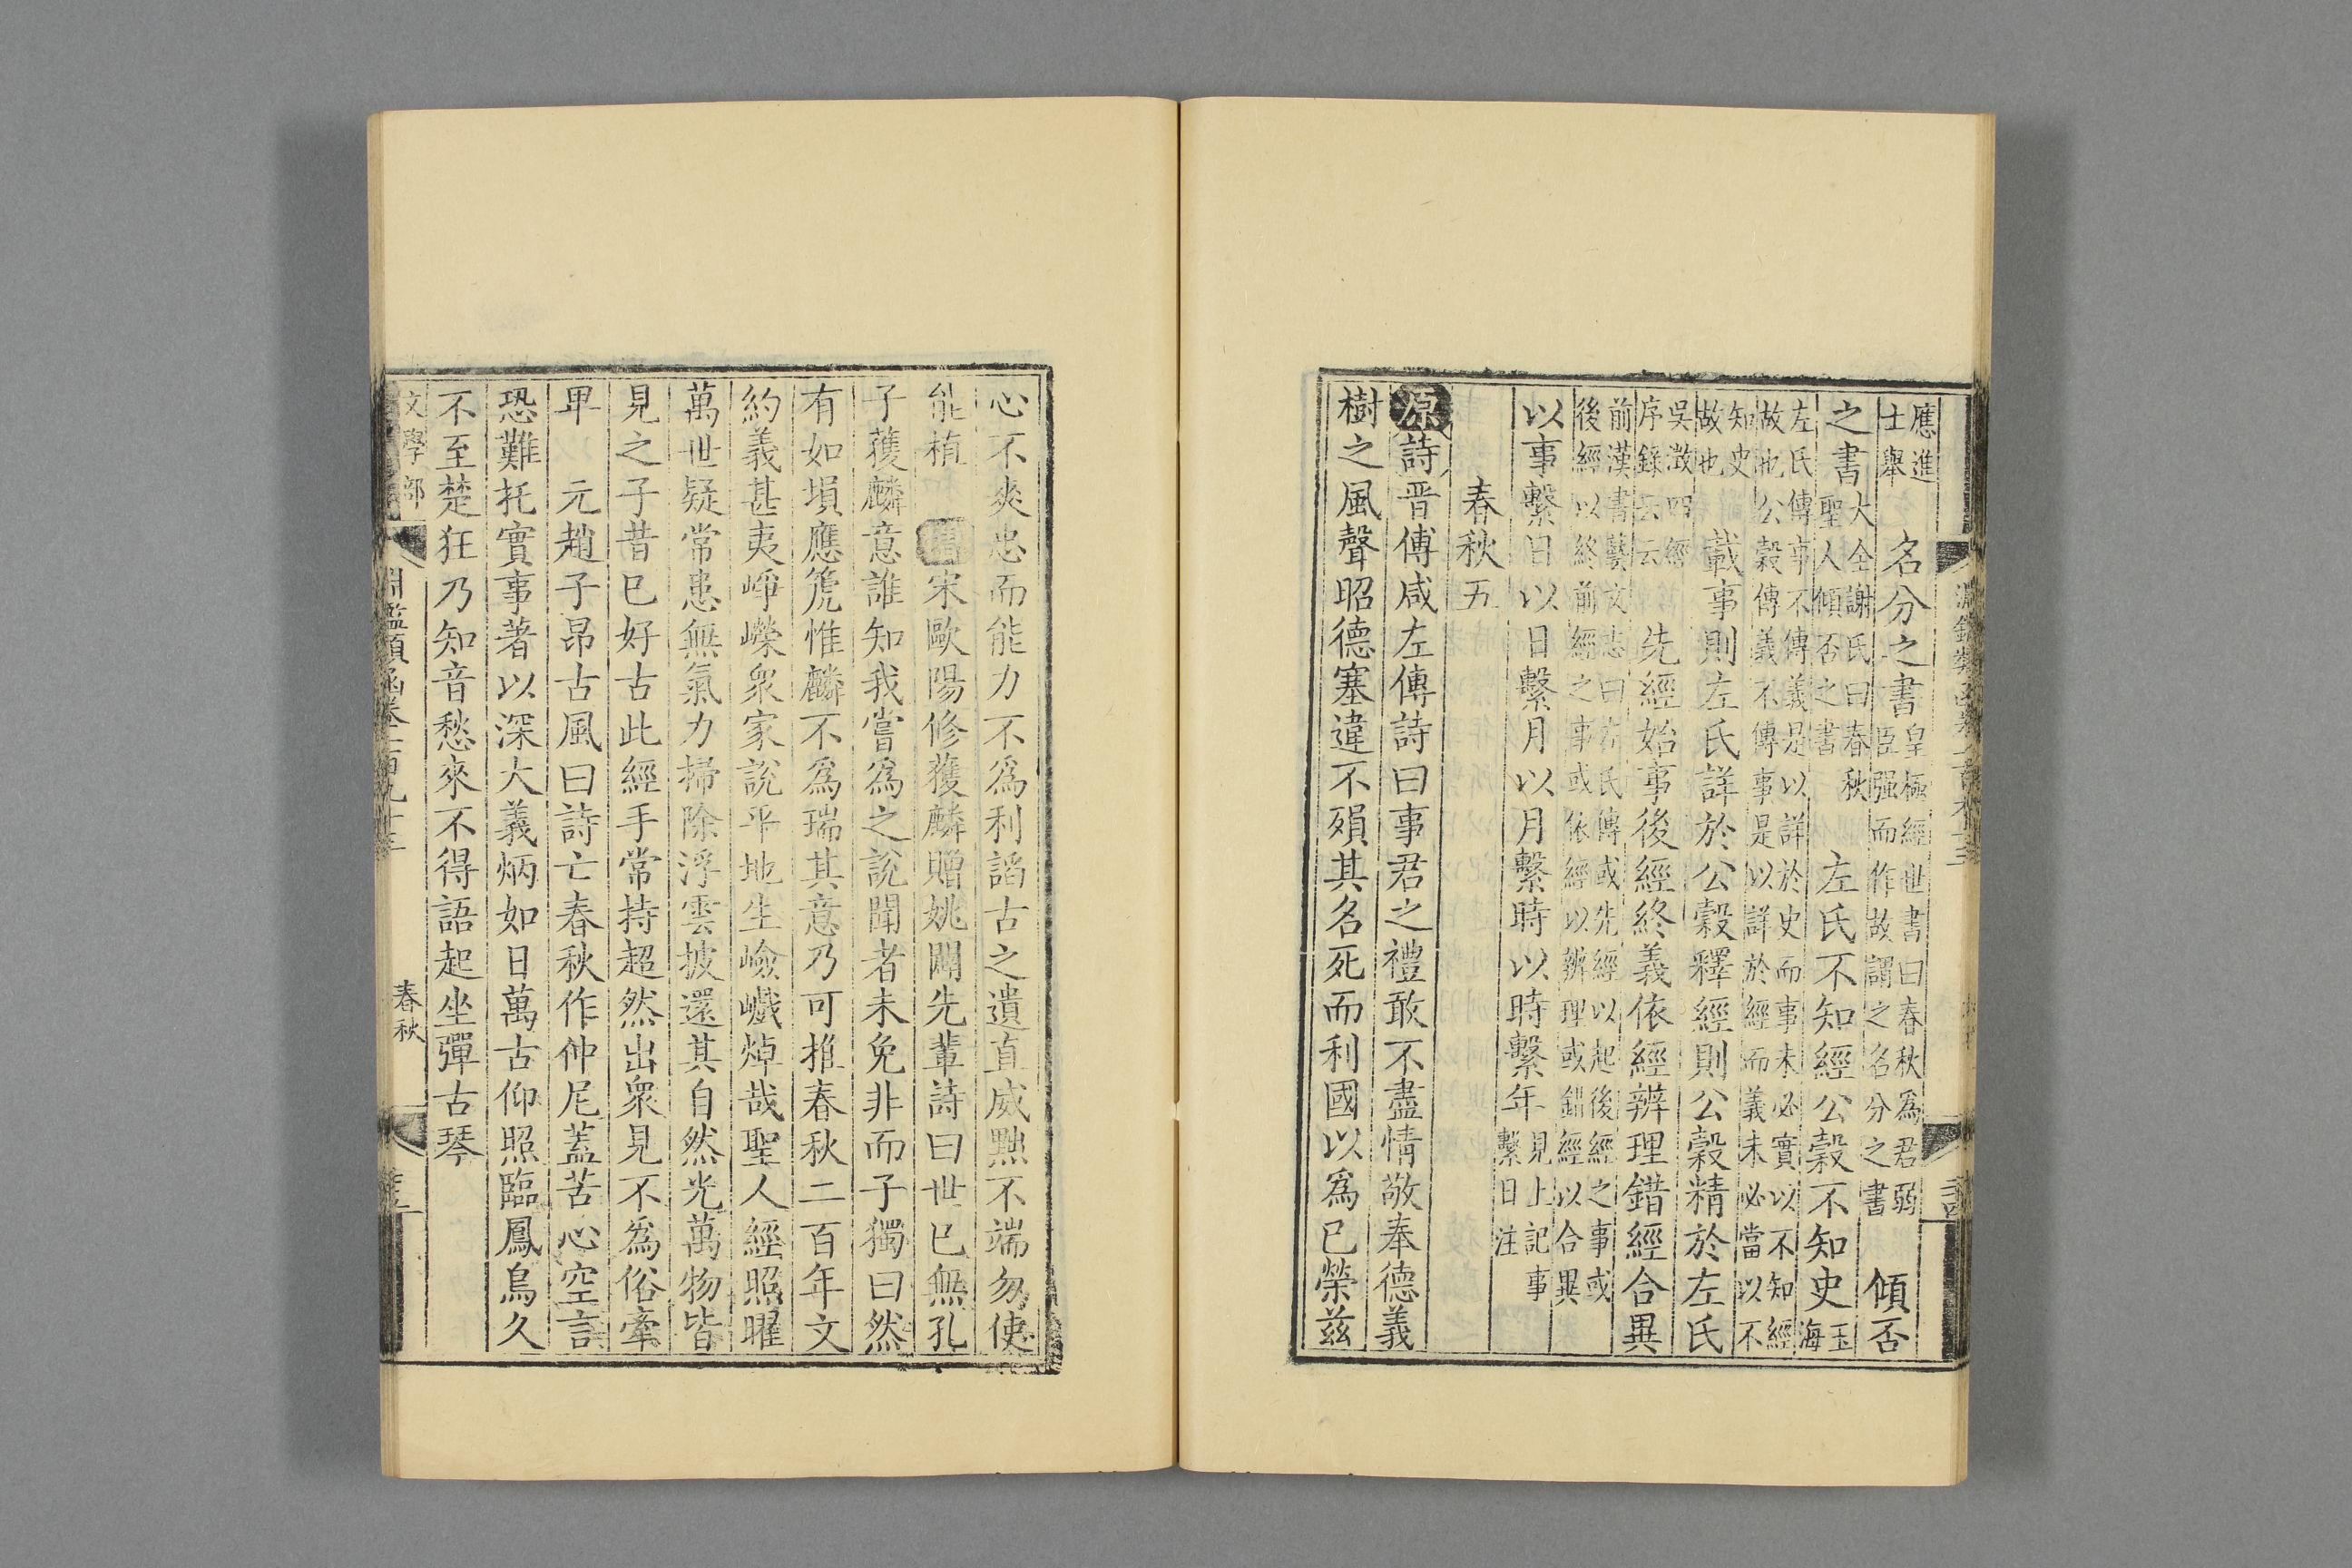 應進士舉 名分之書 皇極經世書曰春秋爲君弱臣强而作故謂之名分之書 傾否
之書 大全謝氏曰春秋聖人傾否之書 左氏不知經公穀不知史 玉海
左氏傳事不傳義是以詳於史而事未必實以不知經故也公穀傳義不傳事是以詳於經而義未必當以不
知史故也 載事則左氏詳於公穀釋經則公穀精於左氏
吳澂四經序錄云云 先經始事後經終義依經辨理錯經合異
前漢書藝文志曰左氏傳或先經以起後經之事或後經以終前經之事或依經以辨理或錯經以合異
以事繫日以日繫月以月繫時以時繫年 見上記事繫日注
春秋五
源詩晋傅咸左傳詩曰事君之禮敢不盡情敬奉德義
樹之風聲昭德塞違不殞其名死而利國以爲已榮兹
心不爽忠而能力不爲利謟古之遺直威黜不端勿使
能植 宋歐陽修獲麟贈姚闢先輩詩曰世已無孔
子獲麟意誰知我嘗爲之說聞者未免非而子獨曰然
有如塤應箎惟麟不爲瑞其意乃可推春秋二百年文
約義甚夷崢嶸衆家說平地生嶮巇焯哉聖人經照曜
萬世疑常患無氣力掃除浮雲披還其自然光萬物皆
見之子昔已好古此經手常持超然出衆見不爲俗牽
卑 元趙子昂古風曰詩亡春秋作仲尼蓋苦心空言
恐難托實事著以深大義炳如日萬古仰照臨鳳鳥久
不至楚狂乃知音愁來不得語起坐彈古琴
文學部 淵鑑類函卷一百九十三 春秋